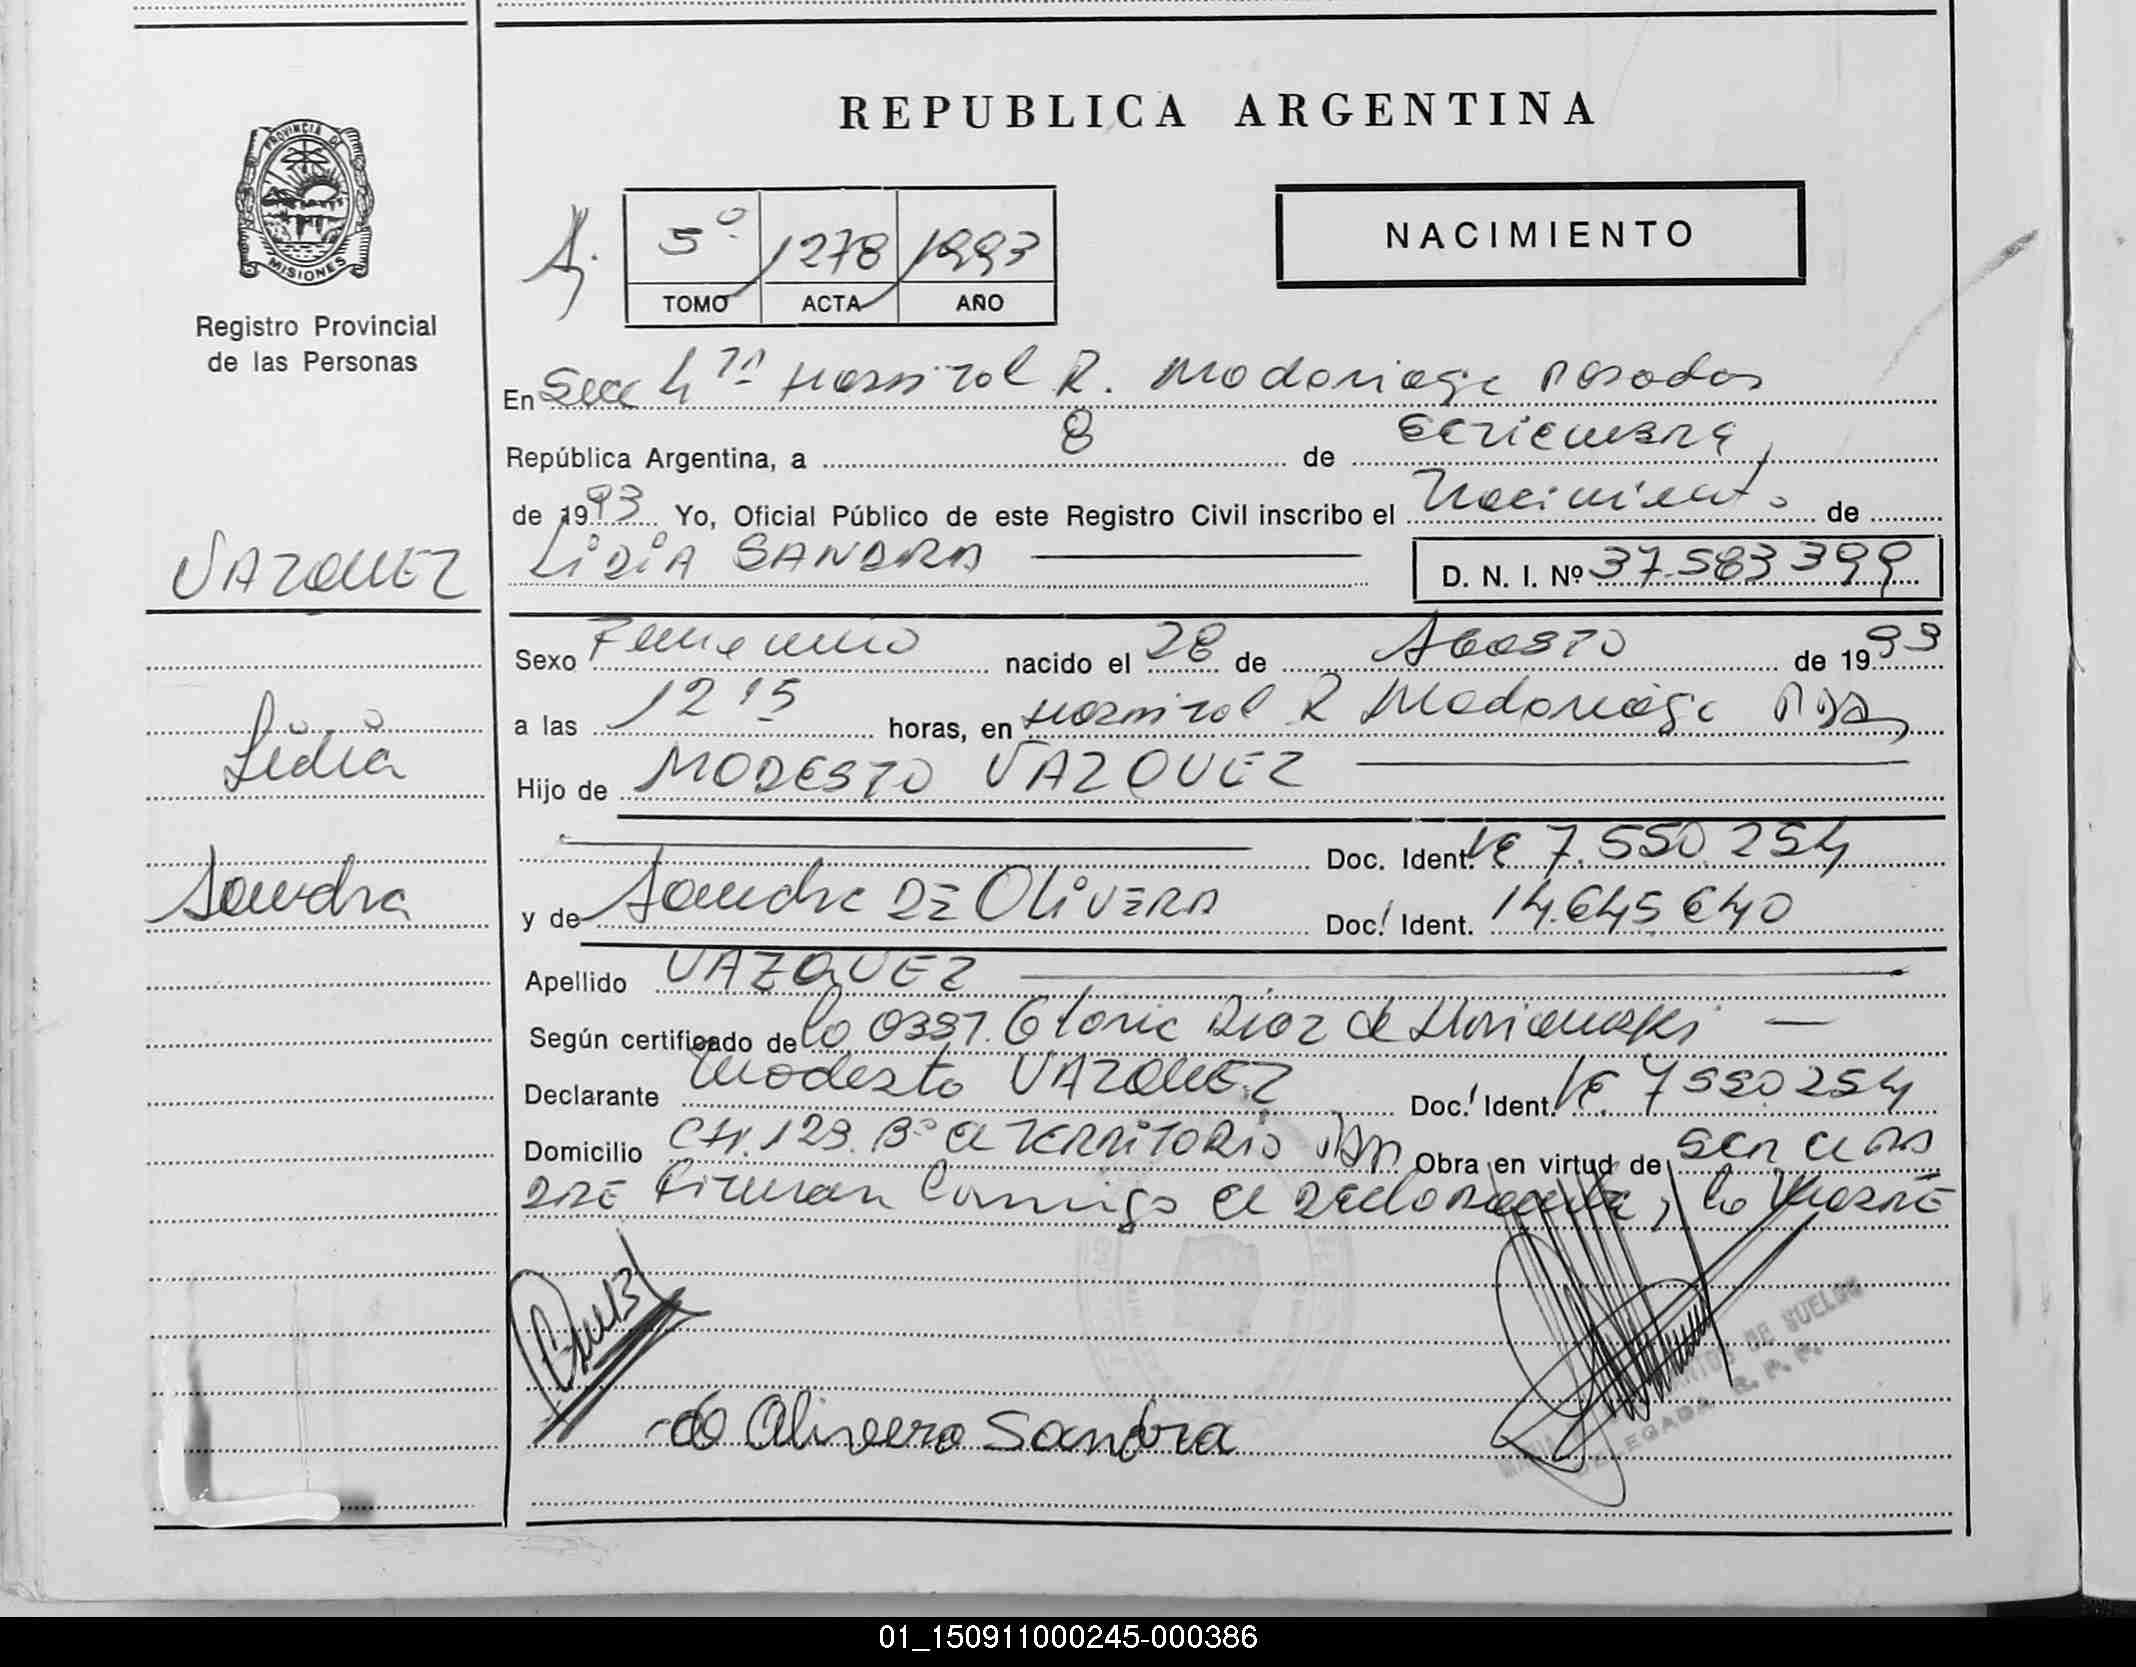 REPUBLICA ARGENTINA
PROVINCIA DE
MISIONES
Registro Provincial
de las Personas
5º 1278 1993
TOMO ACTA AÑO
NACIMIENTO
En Secc 4ta Hospital R. Madariaga Posadas
República Argentina, a 8 de Setiembre,
de 1993 Yo, Oficial Público de este Registro Civil inscribo el Nacimiento de
LIDIA SANDRA
D. N. I. Nº 37.583 399
VAZQUEZ
Lidia
Sandra
Sexo Femenino nacido el 28 de Agosto de 1993
a las 12 15 horas, en Hospital R Madariaga Pdas
Hijo de MODESTO VAZQUEZ
Doc. Ident. LE 7.550.254
y de Sandra DE OLiVERA Doc. Ident. 14.645 640
Apellido VAZQUEZ
Según certificado de la Gloria Diaz de
Declarante Modesto VAZQUEZ Doc. Ident. LE 7 550 254
Domicilio CH. 123. Bº El TERRITORIO Obra en virtud de ser el PA
DRE Firman Conmigo el Declarante, la MADRE
de Olivera Sandra
DE SUELDO
DELEGADA R. P. P.
01_150911000245-000386